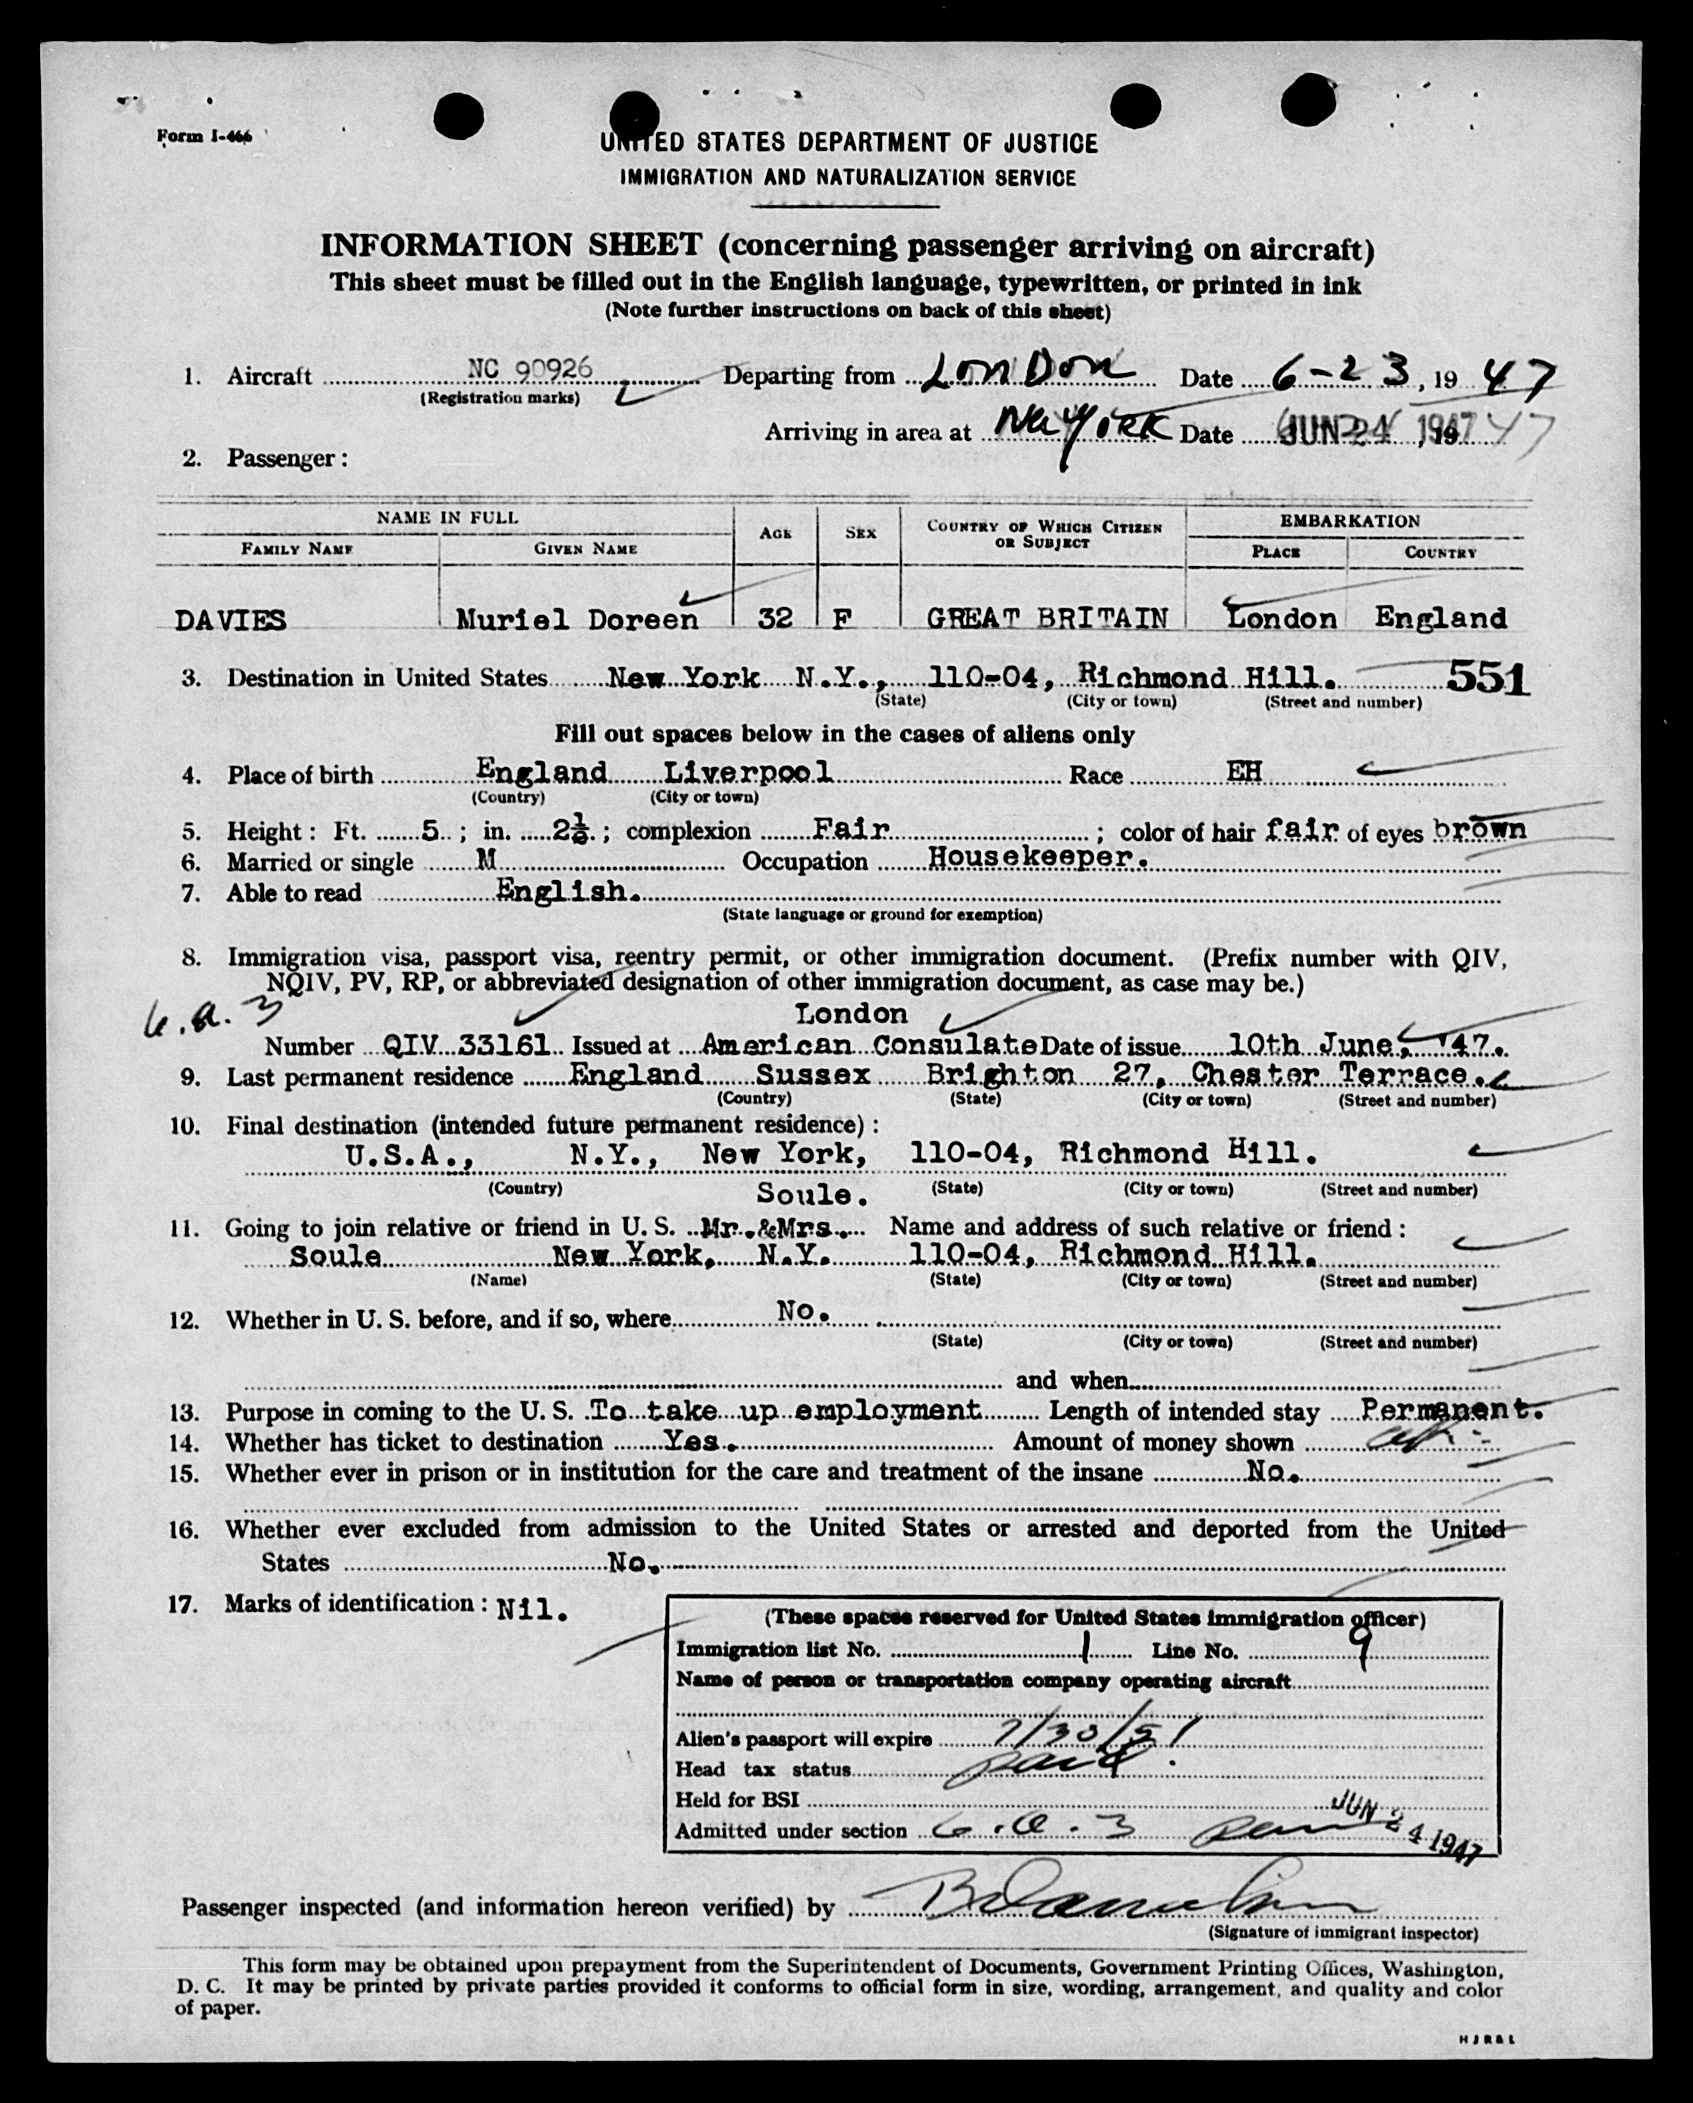 Form I-466
UNITED STATES DEPARTMENT OF JUSTICE
IMMIGRATION AND NATURALIZATION SERVICE
INFORMATION SHEET (concerning passenger arriving on aircraft)
This sheet must be filled out in the English language, typewritten, or printed in ink
(Note further instructions on back of this sheet)
1. Aircraft NC 90926 Departing from LonDon Date 6-23, 19 47
(Registration marks)
Arriving in area at New York Date JUN 24 1947, 19 47
2. Passenger:
NAME IN FULL AGE SEX COUNTRY OF WHICH CITIZEN OR SUBJECT EMBARKATION
FAMILY NAME GIVEN NAME PLACE COUNTRY
DAVIES Muriel Doreen 32 F GREAT BRITAIN London England
3. Destination in United States New York N.Y., 110-04, Richmond Hill. 551
(State) (City or town) (Street and number)
Fill out spaces below in the cases of aliens only
4. Place of birth England Liverpool Race EH
(Country) (City or town)
5. Height: Ft. 5; in. 2½; complexion Fair; color of hair fair of eyes brown
6. Married or single M Occupation Housekeeper.
7. Able to read English.
(State language or ground for exemption)
8. Immigration visa, passport visa, reentry permit, or other immigration document. (Prefix number with QIV,
NQIV, PV, RP, or abbreviated designation of other immigration document, as case may be.)
6.a.3 London
Number QIV 33161 Issued at American Consulate Date of issue 10th June, '47.
9. Last permanent residence England Sussex Brighton 27, Chester Terrace.
(Country) (State) (City or town) (Street and number)
10. Final destination (intended future permanent residence):
U.S.A., N.Y., New York, 110-04, Richmond Hill.
(Country) (State) (City or town) (Street and number)
Soule.
11. Going to join relative or friend in U. S. Mr.&Mrs. Name and address of such relative or friend:
Soule New York, N.Y. 110-04, Richmond Hill.
(Name) (State) (City or town) (Street and number)
12. Whether in U. S. before, and if so, where No.
(State) (City or town) (Street and number)
and when
13. Purpose in coming to the U. S. To take up employment Length of intended stay Permanent.
14. Whether has ticket to destination Yes. Amount of money shown
15. Whether ever in prison or in institution for the care and treatment of the insane No.
16. Whether ever excluded from admission to the United States or arrested and deported from the United
States No.
17. Marks of identification: Nil.
(These spaces reserved for United States immigration officer)
Immigration list No. 1 Line No. 9
Name of person or transportation company operating aircraft
Alien's passport will expire 7/30/51
Head tax status paid.
Held for BSI
Admitted under section 6.a.3 JUN 24 1947
Passenger inspected (and information hereon verified) by
(Signature of immigrant inspector)
This form may be obtained upon prepayment from the Superintendent of Documents, Government Printing Offices, Washington,
D. C. It may be printed by private parties provided it conforms to official form in size, wording, arrangement, and quality and color
of paper.
HJR&L